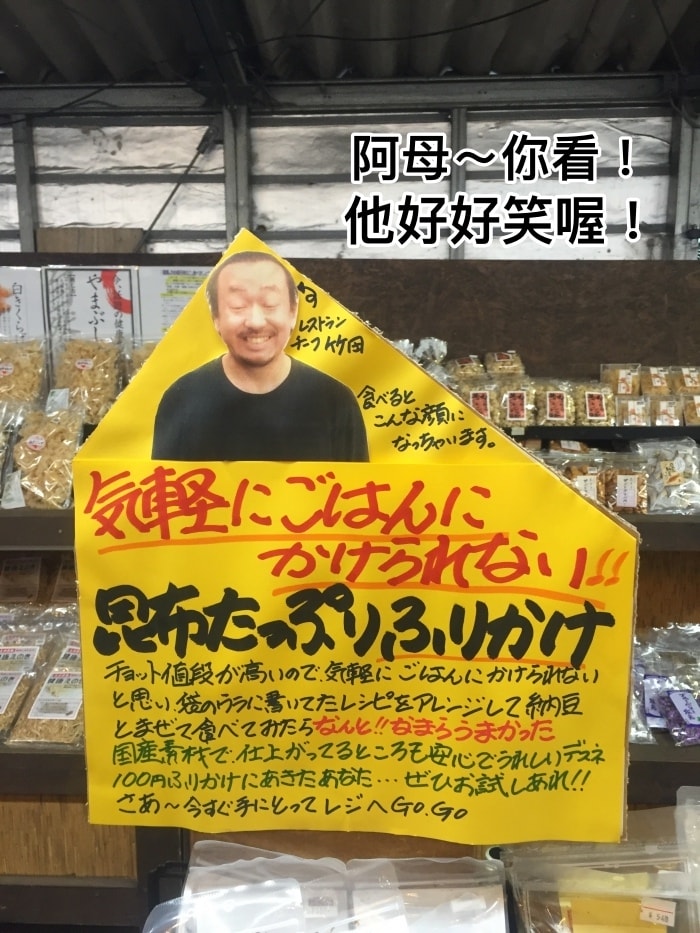 阿母～你看！
他好好笑喔！
やまぶ
レストラン
チーフ竹田
食べると
こんな顔に
なっちゃいます。
気軽にごはんに
かけられない!!
昆布たっぷりふりかけ
チョット値段が高いので、気軽にごはんにかけられない
と思い、袋のウラに書いてたレシピをアレンジして納豆
とまぜて食べてみたらなんと!!なまらうまかった
国産素材で、仕上がってるところも安心でうれしいデスネ
100円ふりかけにあきたあなた…ぜひお試しあれ!!
さあ～今すぐ手にとってレジへGo.Go